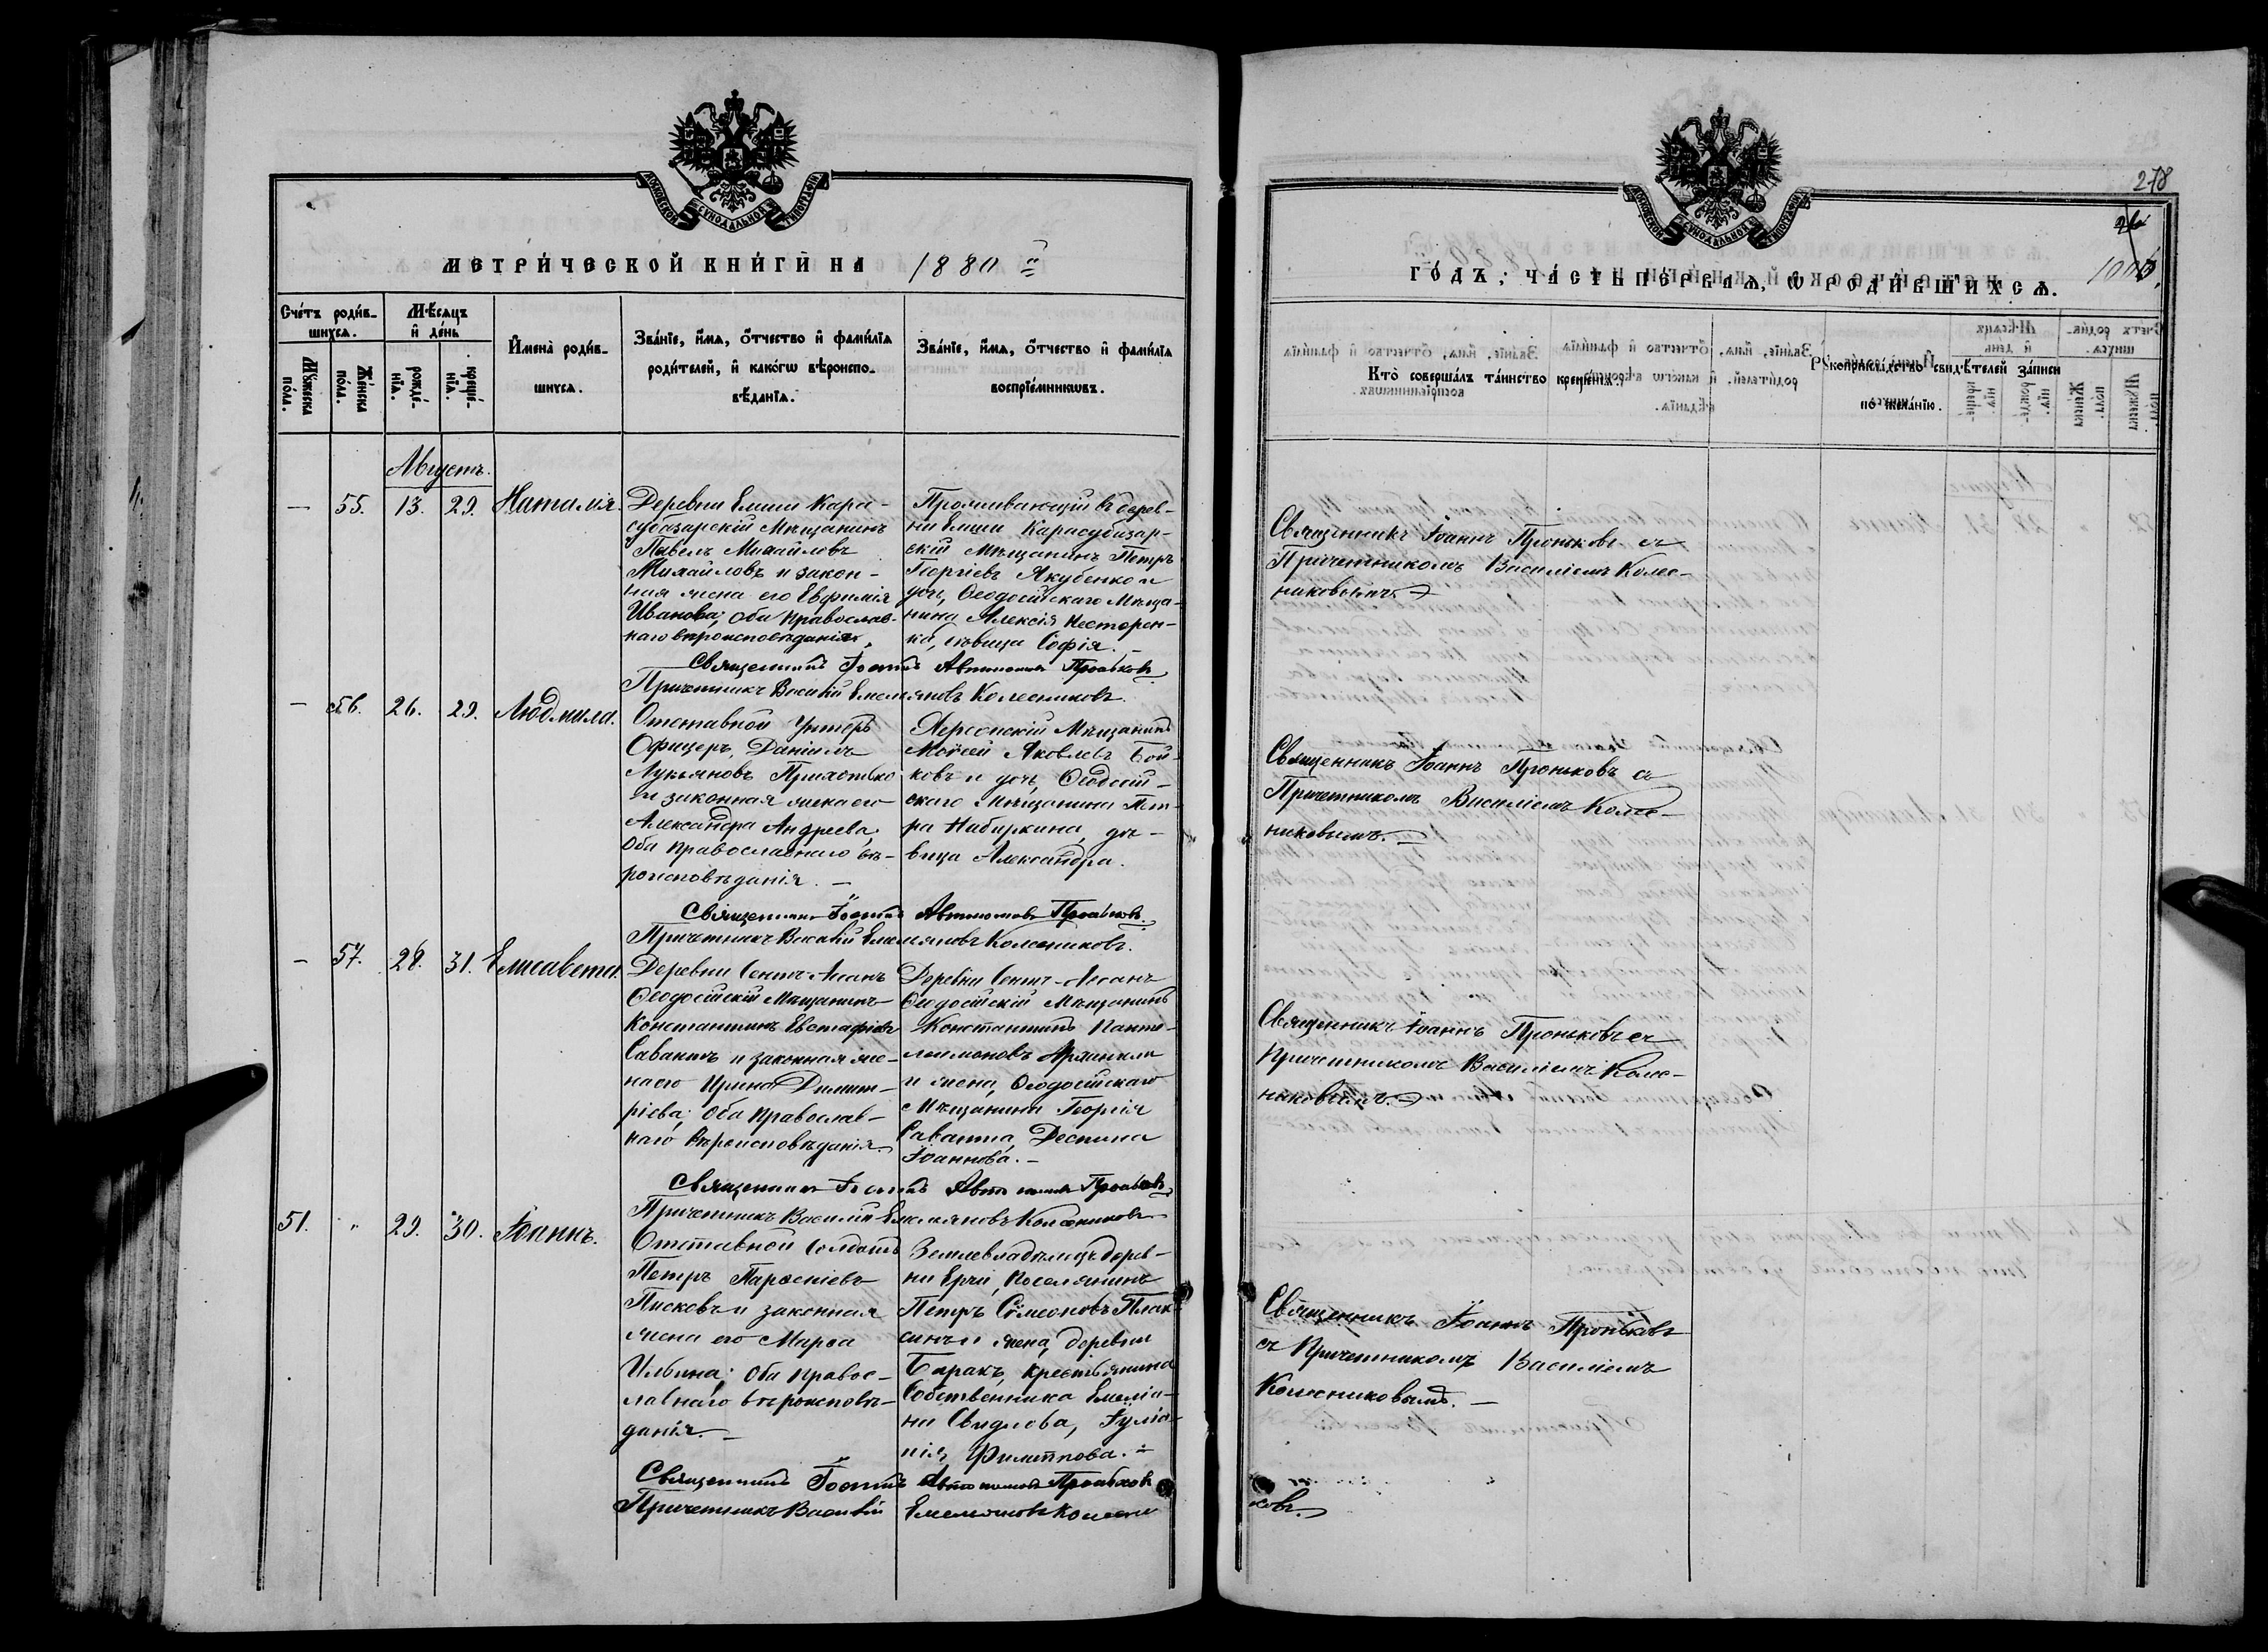 МОСКОВСКОЙ СѴНОДАЛЬНОЙ ТИПОГРАФІИ
МЕТРИ́ЧЕСКОЙ КНИ́ГИ НА 1880 й
Сче́тъ роди́в-
шихся.
Мѣ́сяцъ
и҆ де́нь
Мꙋ́жеска по́ла.
Же́нска по́ла.
рожде́-
нїѧ.
креще́-
нїѧ.
И҆мена̀ роди́в-
шихся.
Зва́нїе, и҆́мѧ, ѻ҆́тчество и҆ фами́лїѧ
роди́телей, и҆ како́гѡ вѣроиспо-
вѣ́данїѧ.
Зва́нїе, и҆́мѧ, ѻ҆́тчество и҆ фами́лїѧ
воспрїе́мникѡвъ.
Августъ.
— 55. 13. 29. Наталія.
Деревни Елиши Кара-
субазарскій Мѣщанинъ
Павелъ Михайловъ
Михайловъ и закон-
ная жена его Евфимія
Иванова; оба православ-
наго вѣроисповѣданія.
Проживающій въ дерев-
ни Елиши Карасубазар-
скій Мѣщанинъ Петръ
Георгіевъ Якубенко и
дочь, Ѳеодосійскаго Мѣща-
нина Алексія Несторен-
ка, дѣвица Софія. —
Священникъ Іоаннъ Автономовъ Проньковъ
Причетникъ Василій Емельяновъ Колесниковъ.
— 56. 26. 29. Людмила.
Отставной Унтеръ
Офицеръ, Даніилъ
Лукьяновъ Приходько
и законная жена его
Александра Андреева;
Оба православнаго вѣ-
роисповѣданія. —
Херсонскій Мѣщанинъ
Моисей Яковлевъ Бой-
ковъ и дочь, Ѳеодосій-
скаго Мѣщанина Пет-
ра Набиркина, дѣ-
вица Александра.
Священникъ Іоаннъ Автономовъ Проньковъ.
Причетникъ Василій Емельяновъ Колесниковъ.
— 57. 28. 31. Елисавета.
Деревни Сеитъ-Асанъ
Ѳеодосійскій Мѣщанинъ
Константинъ Евстафіевъ
Саванитъ и законная же-
на его Ирина Димит-
ріева; Оба православ-
наго Вѣроисповѣданія.
Деревни Сеитъ-Асанъ
Ѳеодосійскій Мѣщанинъ
Константинъ Панте-
леимоновъ
и жена, Ѳеодосійскаго
Мѣщанина Георгія
Саванита, Деспина
Іоаннова. —
Священникъ Іоаннъ Автономовъ Проньковъ
Причетникъ Василій Емельяновъ Колесниковъ
51. „ 29. 30. Іоаннъ.
Отставной Солдатъ
Петръ Парѳеніевъ
Писковъ и законная
жена его Марѳа
Ильина; Оба право-
славнаго вѣроисповѣ-
данія. —
Землевладѣлецъ дерев-
ни Ерчи, Поселянинъ
Петръ Сѵмеоновъ Плак-
синъ и жена, деревни
Баракъ, Крестьянина
Собственника Емеліа-
на Свидлова, Іуліа-
нія Филиппова. —
Священникъ Іоаннъ Автономовъ Проньков
Причетникъ Василій Емельяновъ Колесни
278
1000.
МОСКОВСКОЙ СѴНОДАЛЬНОЙ ТИПОГРАФІИ
ГО́ДЪ; ЧА́СТЬ ПЕ́РВАѦ, Ѡ РОДИ́ВШИХСѦ.
Кто̀ соверша́лъ та́инство креще́нїѧ.
Рꙋкоприкла́дство свидѣ́телей за́писи
по жела́нїю.
Священникъ Іоаннъ Проньковъ съ
Причетникомъ Василіемъ Колес-
никовымъ.
Священникъ Іоаннъ Проньковъ съ
Причетникомъ Василіемъ Колес-
никовымъ. —
Священникъ Іоаннъ Проньковъ съ
Причетникомъ Василіемъ Колес-
никовымъ.
Священникъ Іоаннъ Проньковъ
съ Причетникомъ Василіемъ
Колесниковымъ. —
ковъ.